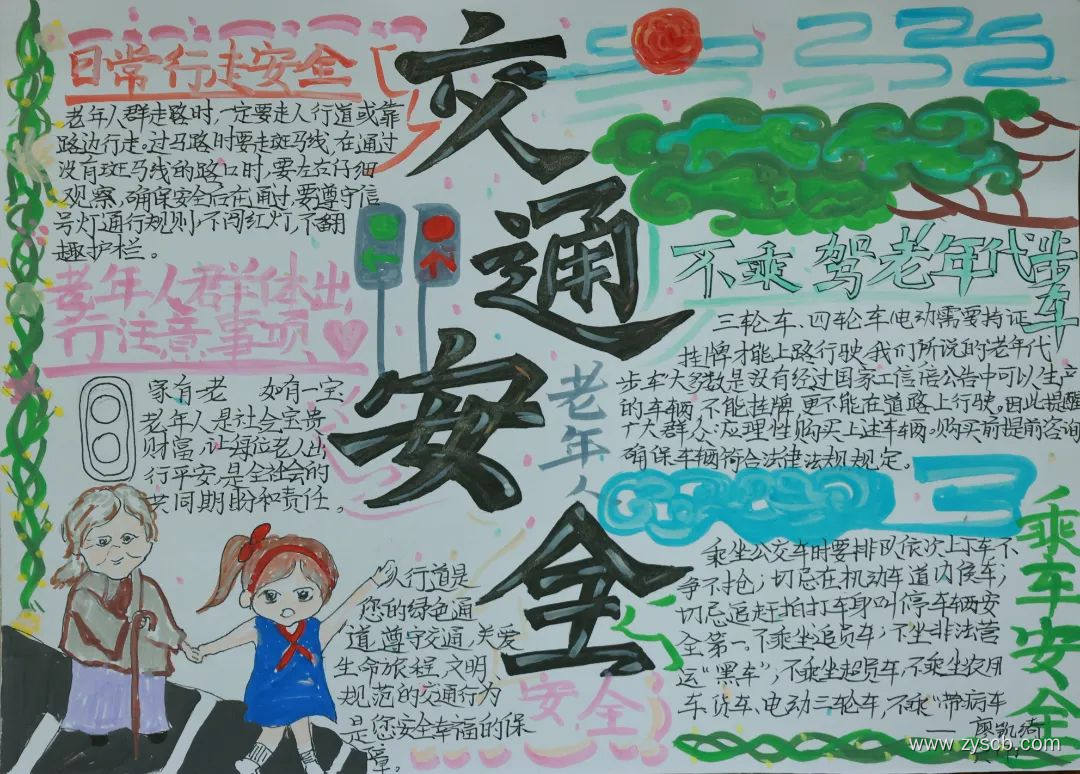 交通安全
老年人
安全
日常行走安全
老年人群走路时,一定要走人行道或靠
路边行走。过马路时要走斑马线,在通过
没有斑马线的路口时,要左右仔细
观察,确保安全后在通过,要遵守信
号灯通行规则,不闯红灯,不翻
越护栏。
老年人群体出
行注意事项
家有一老 如有一宝
老年人是社会宝贵
财富,让每位老人出
行平安,是全社会的
共同期盼和责任。
人行道是
您的绿色通
道,遵守交通,关爱
生命旅程,文明
规范的交通行为
是您安全幸福的保
障。
不乘驾老年代步车
三轮车、四轮车电动需要持证
挂牌才能上路行驶,我们所说的老年代
步车大多数是没有经过国家工信部公告中可以生产
的车辆,不能挂牌,更不能在道路上行驶。因此提醒
广大群众:应理性购买上述车辆。购买前提前咨询
确保车辆符合法律法规规定。
乘车安全
乘坐公交车时要排队依次上下车不
争不抢;切忌在机动车道内候车;
切忌追赶拍打车身叫停车辆安
全第一。不乘坐超员车;不坐非法营
运“黑车”,不乘坐超员车,不乘坐农用
车货车、电动三轮车,不乘“带病车”
廖凯琦
www.zyscb.com